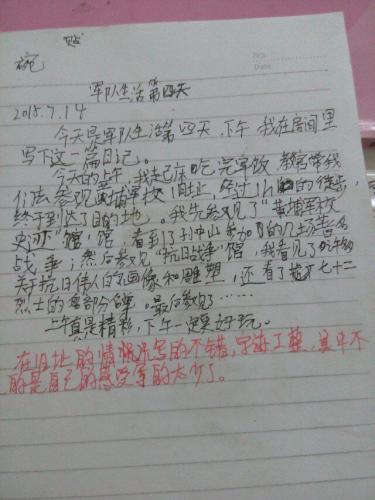 贴
宛
军队生活第四天
2015.7.14
今天是军队生活第四天,下午,我在房间里
写下这一篇日记。
今天的上午,我起床吃完军饭,教官带我
们去参观黄埔军校旧址,经过1小时的徒步,
终于到达了目的地。我先参观了"黄埔军校
史迹"馆,看到了孙中山参加的几大著名
战争;然后参观"抗日战争"馆,我看见了许多
关于抗日伟人的画像和雕塑,还看了七十二
烈士的部分名单。最后参观了……
上午真是精彩,下午一定更好玩。
在旧址的情况写的不错,字迹工整,美中不
的是自己的感受写的太少了。